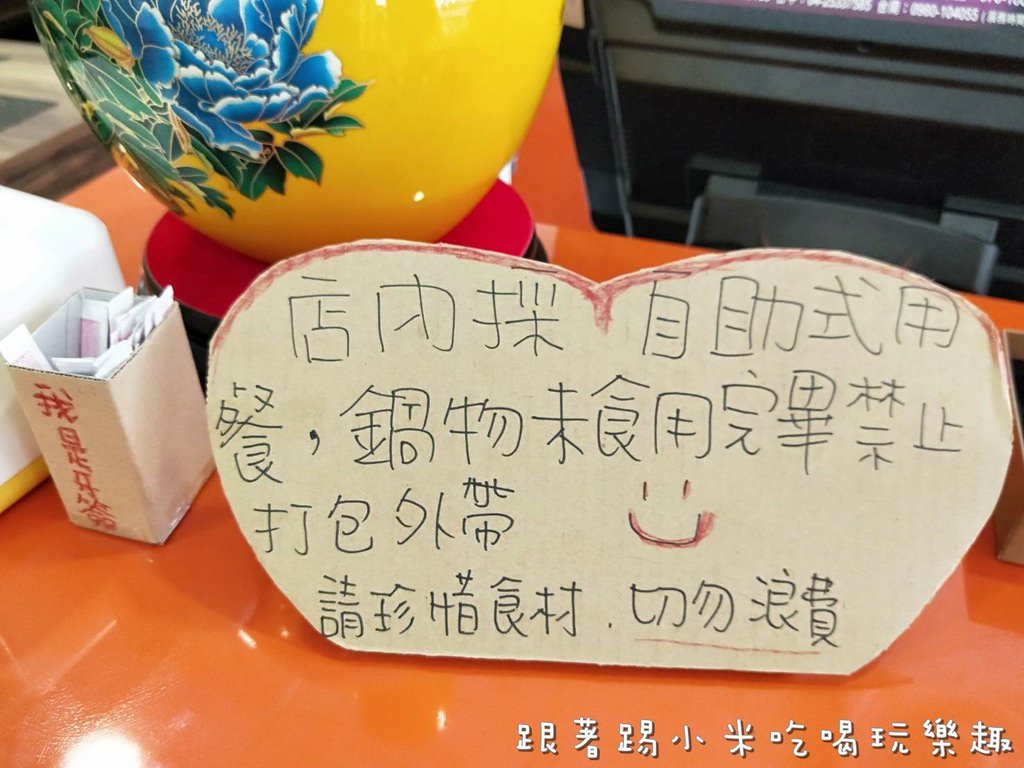 店內採 自助式用
餐，鍋物未食用完畢禁止
打包外帶
請珍惜食材．切勿浪費
我是牙籤
跟著踢小米吃喝玩樂趣